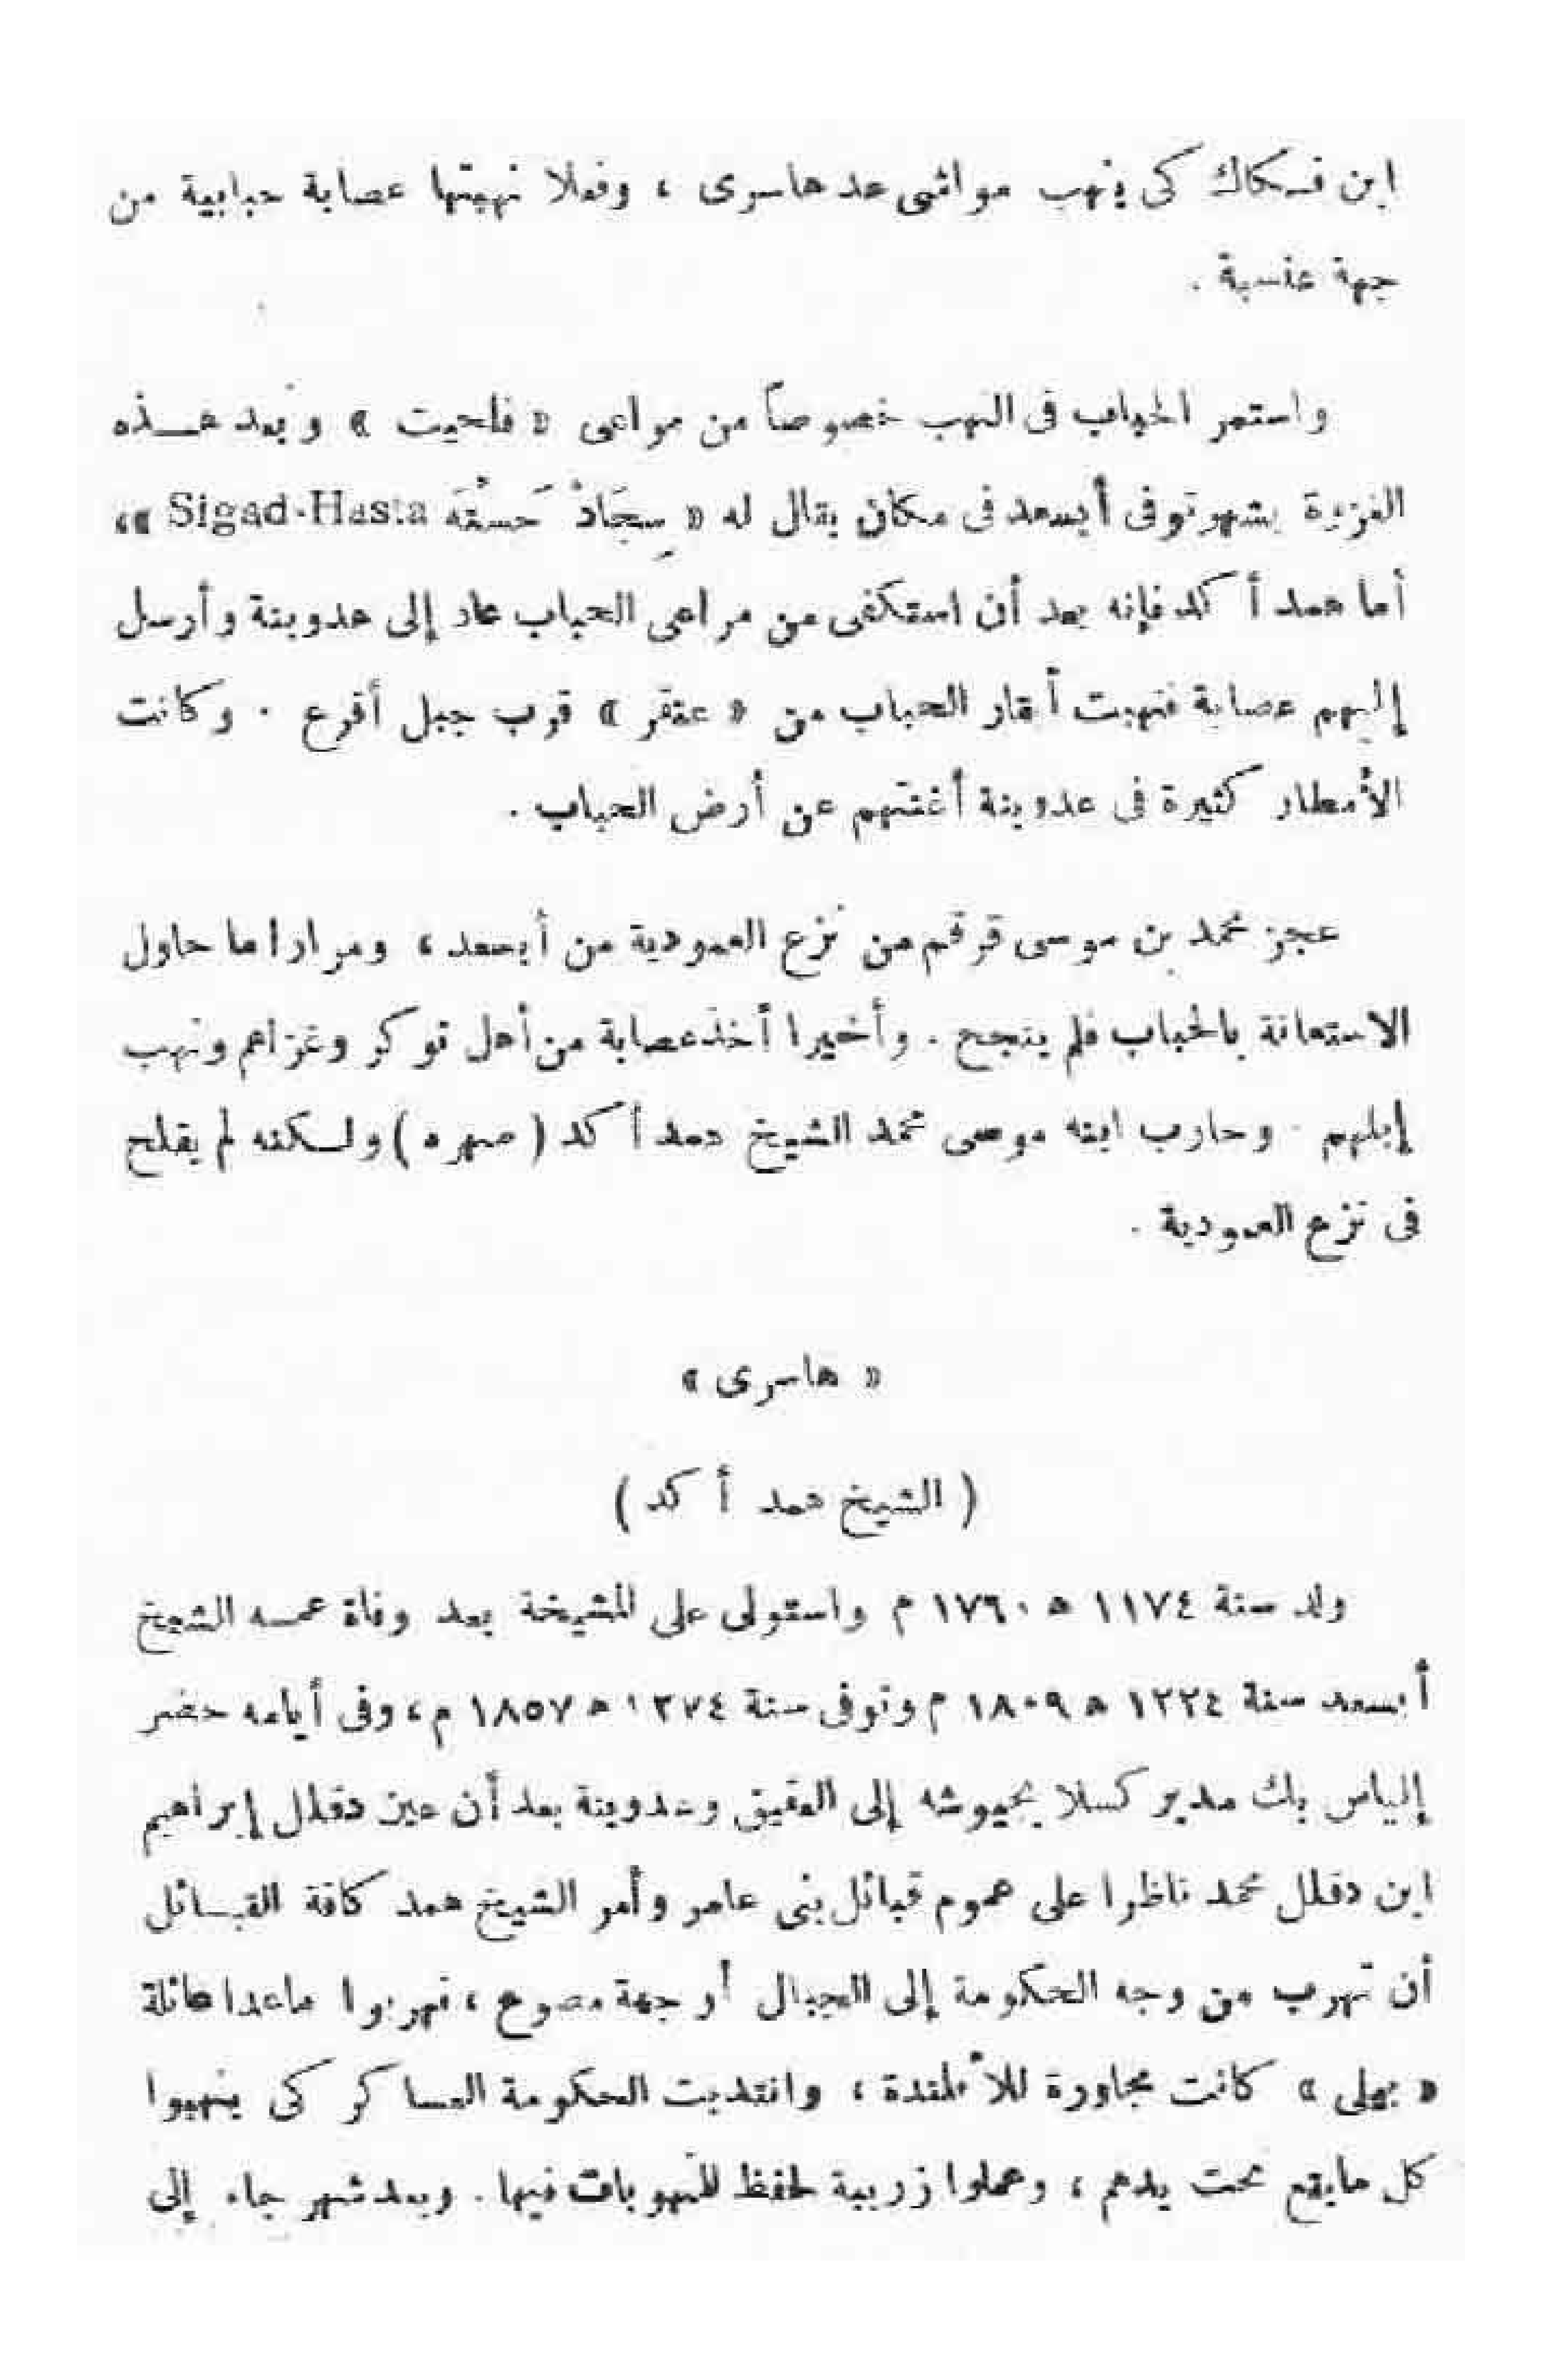 ابن فسكاك كى ينهب مواشى عد هاسرى ، وفعلا نهبتها عصابة حبابية من
جهة عنسبة .
واستمر الحباب فى النهب خصوصاً من مراعى « فلحيت » وبعد هـذه
الغزوة بشهر توفى أبسعد فى مكان يقال له « سِجَادْ حَسْتَه Sigad-Hasta »،
أما همد أكد فإنه بعد أن استكفى من مراعى الحباب عاد إلى عدوبنة وأرسل
إليهم عصابة فنهبت أبقار الحباب من « عتقر » قرب جبل أقرع . وكانت
الأمطار كثيرة فى عدوبنة أغنتهم عن أرض الحباب .
عجز محمد بن موسى قرقم من نزع العمودية من أبسعد ، ومرارا ما حاول
الاستعانة بالحباب فلم ينجح . وأخيرا أخذ عصابة من أهل توكر وغزاهم ونهب
إبلهم . وحارب ابنه موسى محمد الشيخ همد أكد ( صهره ) ولـكنه لم يفلح
فى نزع العمودية .
« هاسرى »
( الشيخ همد أكد )
ولد سنة ١١٧٤ ه ١٧٦٠ م واستولى على المشيخة بعد وفاة عمـه الشيخ
أبسعد سنة ١٢٢٤ ه ١٨٠٩ م وتوفى سنة ١٢٧٤ ه ١٨٥٧ م ، وفى أيامه حضر
إلياس بك مدير كسلا بجيوشه إلى العقيق وعدوبنة بعد أن عين دقلل إبراهيم
ابن دقلل محمد ناظرا على عموم قبائل بنى عامر وأمر الشيخ همد كافة القبـائل
أن تهرب من وجه الحكومة إلى الجبال أو جهة مصوع ، فهربوا ماعدا عائلة
« بهلى » كانت مجاورة للألمندة ، وانتدبت الحكومة العساكر كى ينهبوا
كل مايقع تحت يدهم ، وعملوا زريبة لحفظ المنهوبات فيها . وبعد شهر جاء إلى